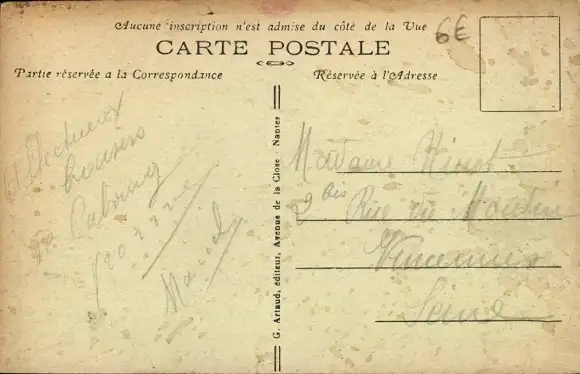 Aucune inscription n'est admise du côté de la Vue
6€
CARTE POSTALE
Partie réservée a la Correspondance
Réservée à l'Adresse
Affectueux
baisers
G. Artaud, éditeur, Avenue de la Close - Nantes
Madame
29 bis Rue du Moulin
Vincennes
Seine